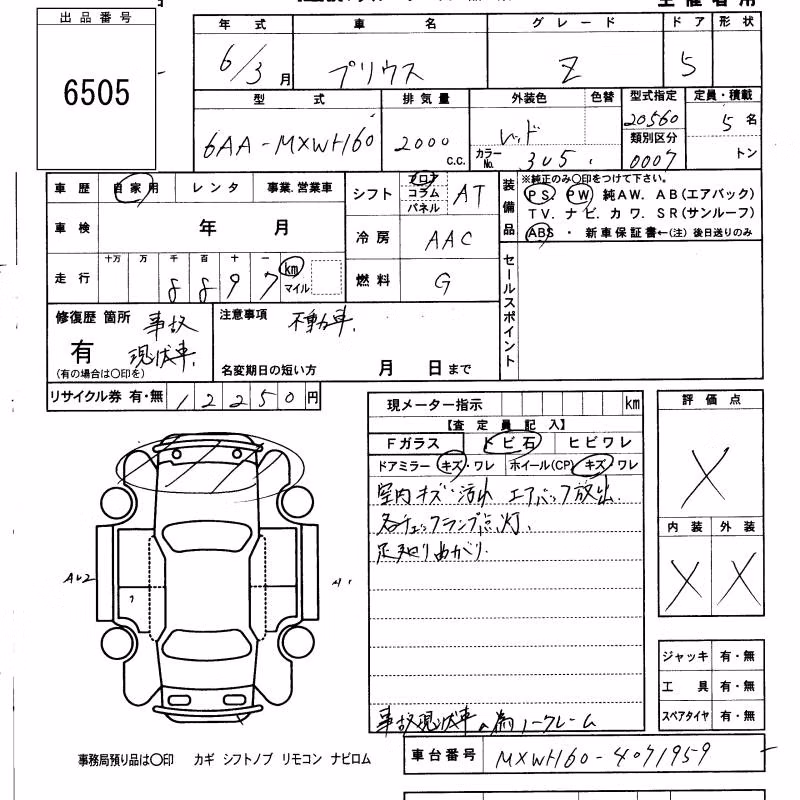 出品番号
6505
年式 車名 グレード ドア 形状
6/3月 プリウス Z 5
型式 排気量 外装色 色替 型式指定 定員・積載
6AA-MXWH60 2000 c.c. レッド 20560 5名
カラーNo. 3U5 類別区分 0007 トン
車歴 自家用 レンタ 事業.営業車
車検 年 月
走行 十万 万 千 百 十 一
8897 km マイル
シフト フロア コラム パネル AT
冷房 AAC
燃料 G
装備品 ※純正のみ○印をつけて下さい。
PS. PW. 純AW. AB(エアバック)
TV. ナビ. カワ. SR(サンルーフ)
ABS ・ 新車保証書←(注) 後日送りのみ
セールスポイント
修復歴 箇所 事故
有 現状車.
(有の場合は○印を)
注意事項 不動車.
名変期日の短い方 月 日まで
リサイクル券 有・無 12250円
現メーター指示 km
【査定員記入】
Fガラス トビ石 ヒビワレ
ドアミラー キズ・ワレ ホイール(CP) キズ・ワレ
室内キズ汚れ エアバック放出.
各チェックランプ点灯.
足廻り曲がり.
事故現状車の為ノークレーム
評価点
X
内装 外装
X X
AU2
A1
ジャッキ 有・無
工具 有・無
スペアタイヤ 有・無
事務局預り品は○印 カギ シフトノブ リモコン ナビロム
車台番号 MXWH60-4071959